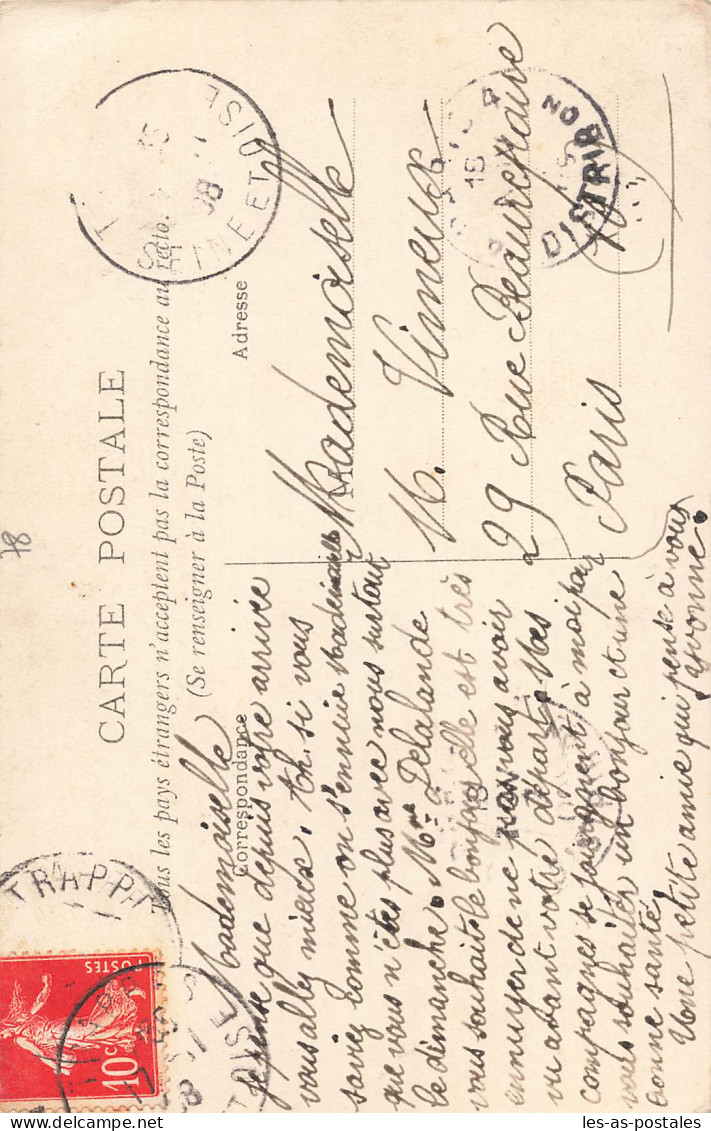 CARTE POSTALE
Tous les pays étrangers n'acceptent pas la correspondance au recto.
(Se renseigner à la Poste)
Correspondance
Adresse
Mademoiselle
je pense que depuis votre arrivée
vous allez mieux. Ah, si vous
saviez comme on s'ennuie Mademoiselle
que vous n'êtes plus avec nous surtout
le dimanche. Mme Delalande
vous souhaite le bonjour, elle est très
ennuyer de ne pas vous avoir
vu avant votre départ. Mes
compagnes se joignent à moi pour
vous souhaiter un bonjour et une
bonne santé.
Une petite amie qui pense à vous
Yvonne.
Mademoiselle
M. Vimeux
29 Rue Beaurepaire
Paris
SEINE ET OISE
15
08
DISTRIB
15
TRAPP
POSTES
10c
OISE
08
78
les-as-postales